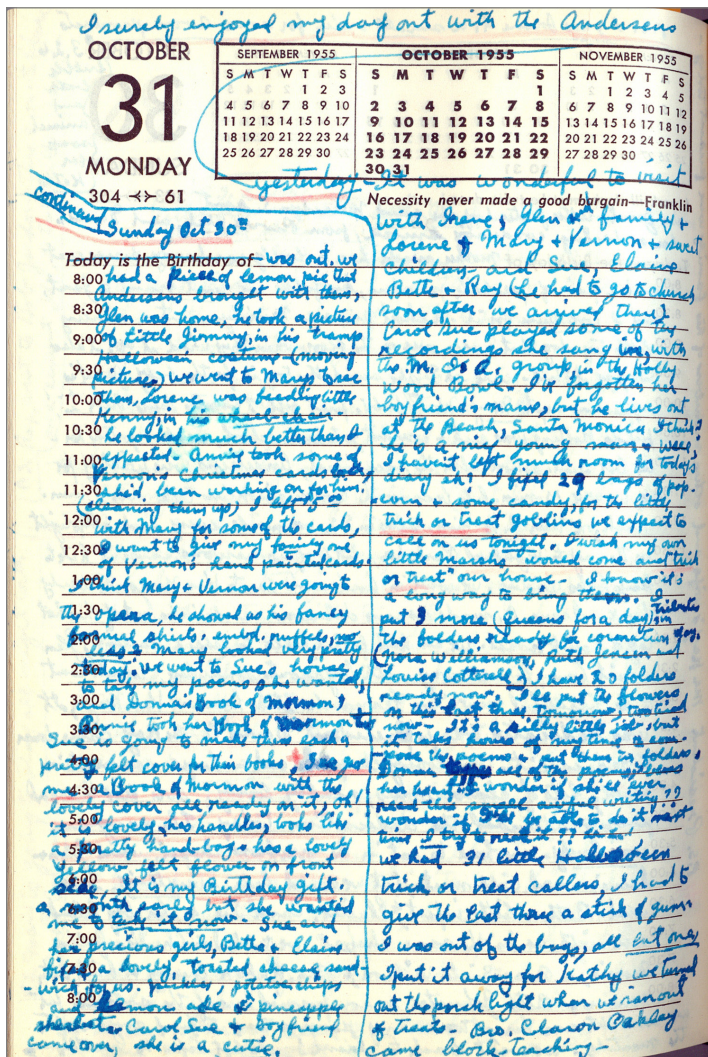 I surely enjoyed my day out with the Andersens
OCTOBER
31
MONDAY
304 61
SEPTEMBER 1955
S M T W T F S
1 2 3
4 5 6 7 8 9 10
11 12 13 14 15 16 17
18 19 20 21 22 23 24
25 26 27 28 29 30
OCTOBER 1955
S M T W T F S
1
2 3 4 5 6 7 8
9 10 11 12 13 14 15
16 17 18 19 20 21 22
23 24 25 26 27 28 29
30 31
NOVEMBER 1955
S M T W T F S
1 2 3 4 5
6 7 8 9 10 11 12
13 14 15 16 17 18 19
20 21 22 23 24 25 26
27 28 29 30
yesterday - It was wonderful to visit
Necessity never made a good bargain—Franklin
continued
Sunday Oct 30th
Today is the Birthday of - was out. we
8:00 had a piece of lemon pie that
Andersens brought with them,
8:30 Glen was home, he took a picture
9:00 of Little Jimmy, in his tramp
Halloween costume (moving
9:30 pictures) we went to Marys to see
10:00 them, Lorene was feeding little
Kenny, in his wheel-chair -
10:30 he looked much better than I
11:00 expected - Annie took some of
Vernon's Christmas cards back,
11:30 she'd been working on for him.
(cleaning them up) I left
12:00 with Mary for some of the cards,
12:30 I want to give my family one
of Vernon's hand painted cards.
1:00 I think Mary & Vernon were going to
1:30 the Opera, he showed us his fancy
formal shirts. embd. ruffels, no
2:00 less & Mary looked very pretty
2:30 today. we went to Sue's house,
to take my poems she wanted,
3:00 and Donna's Book of Mormon &
3:30 Annie took her Book of Mormon too
Sue is going to make them each a
4:00 pretty felt cover for their books. Sue gave
4:30 me a Book of Mormon with the
lovely cover all ready on it, oh,
5:00 it is lovely, has handles, looks like
5:30 a pretty hand-bag - has a lovely
yellow felt flower on front
6:00 side, It is my Birthday gift.
6:30 a month early but she wanted
me to take it now - Sue and
7:00 her precious girls, Bette & Elaine
7:30 fixed a lovely, toasted cheese sand-
-wich for us. pickles, potatoe chips
8:00 and lemon ade & pineapple
sherbet. Carol Sue & boyfriend
came over, she is a cutie.
with Irene, Glen & family &
Lorene & Mary & Vernon & sweet
children and Sue, Elaine
Bette & Ray (he had to go to church
soon after we arrived there).
Carol Sue played some of the
recordings she sang in, with
the M. I. A. group, in the Holly
Wood Bowl - I've forgotten her
boyfriend's name, but he lives out
at the Beach, Santa Monica I think?
he is a nice young man - Well,
I haven't left much room for todays
diary eh? I fixed 29 bags of pop-
-corn & some candy, for the little
trick or treat goblins we expect to
call on us tonight. I wish my own
little Marshs would come and "trick
or treat" our house - I know it's
a long way to bring them. I
put 3 more (Queens for a day) tributes in
the folders ready for coronation day.
(Nora Williamson, Ruth Jensen and
Louise Cottrell) I have 20 folders
ready now. I'll put the flowers
on this last three tomorrow,
now - It's a silly little job, but
it takes hours of mutting to com-
-pose the poems & put them in folders,
Donna types all of the poems, bless
her heart I wonder if she'll ever
read this small awful writing??
wonder if I'll be able to do it next
time I try to read it??
we had 31 little Halloween
trick or treat callers, I had to
give the last three a stick of gum
I was out of the bags, all but one,
I put it away for Kathy we turned
out the porch light when we ran out
of treats - Bro. Claron Oakley
came block-teaching -